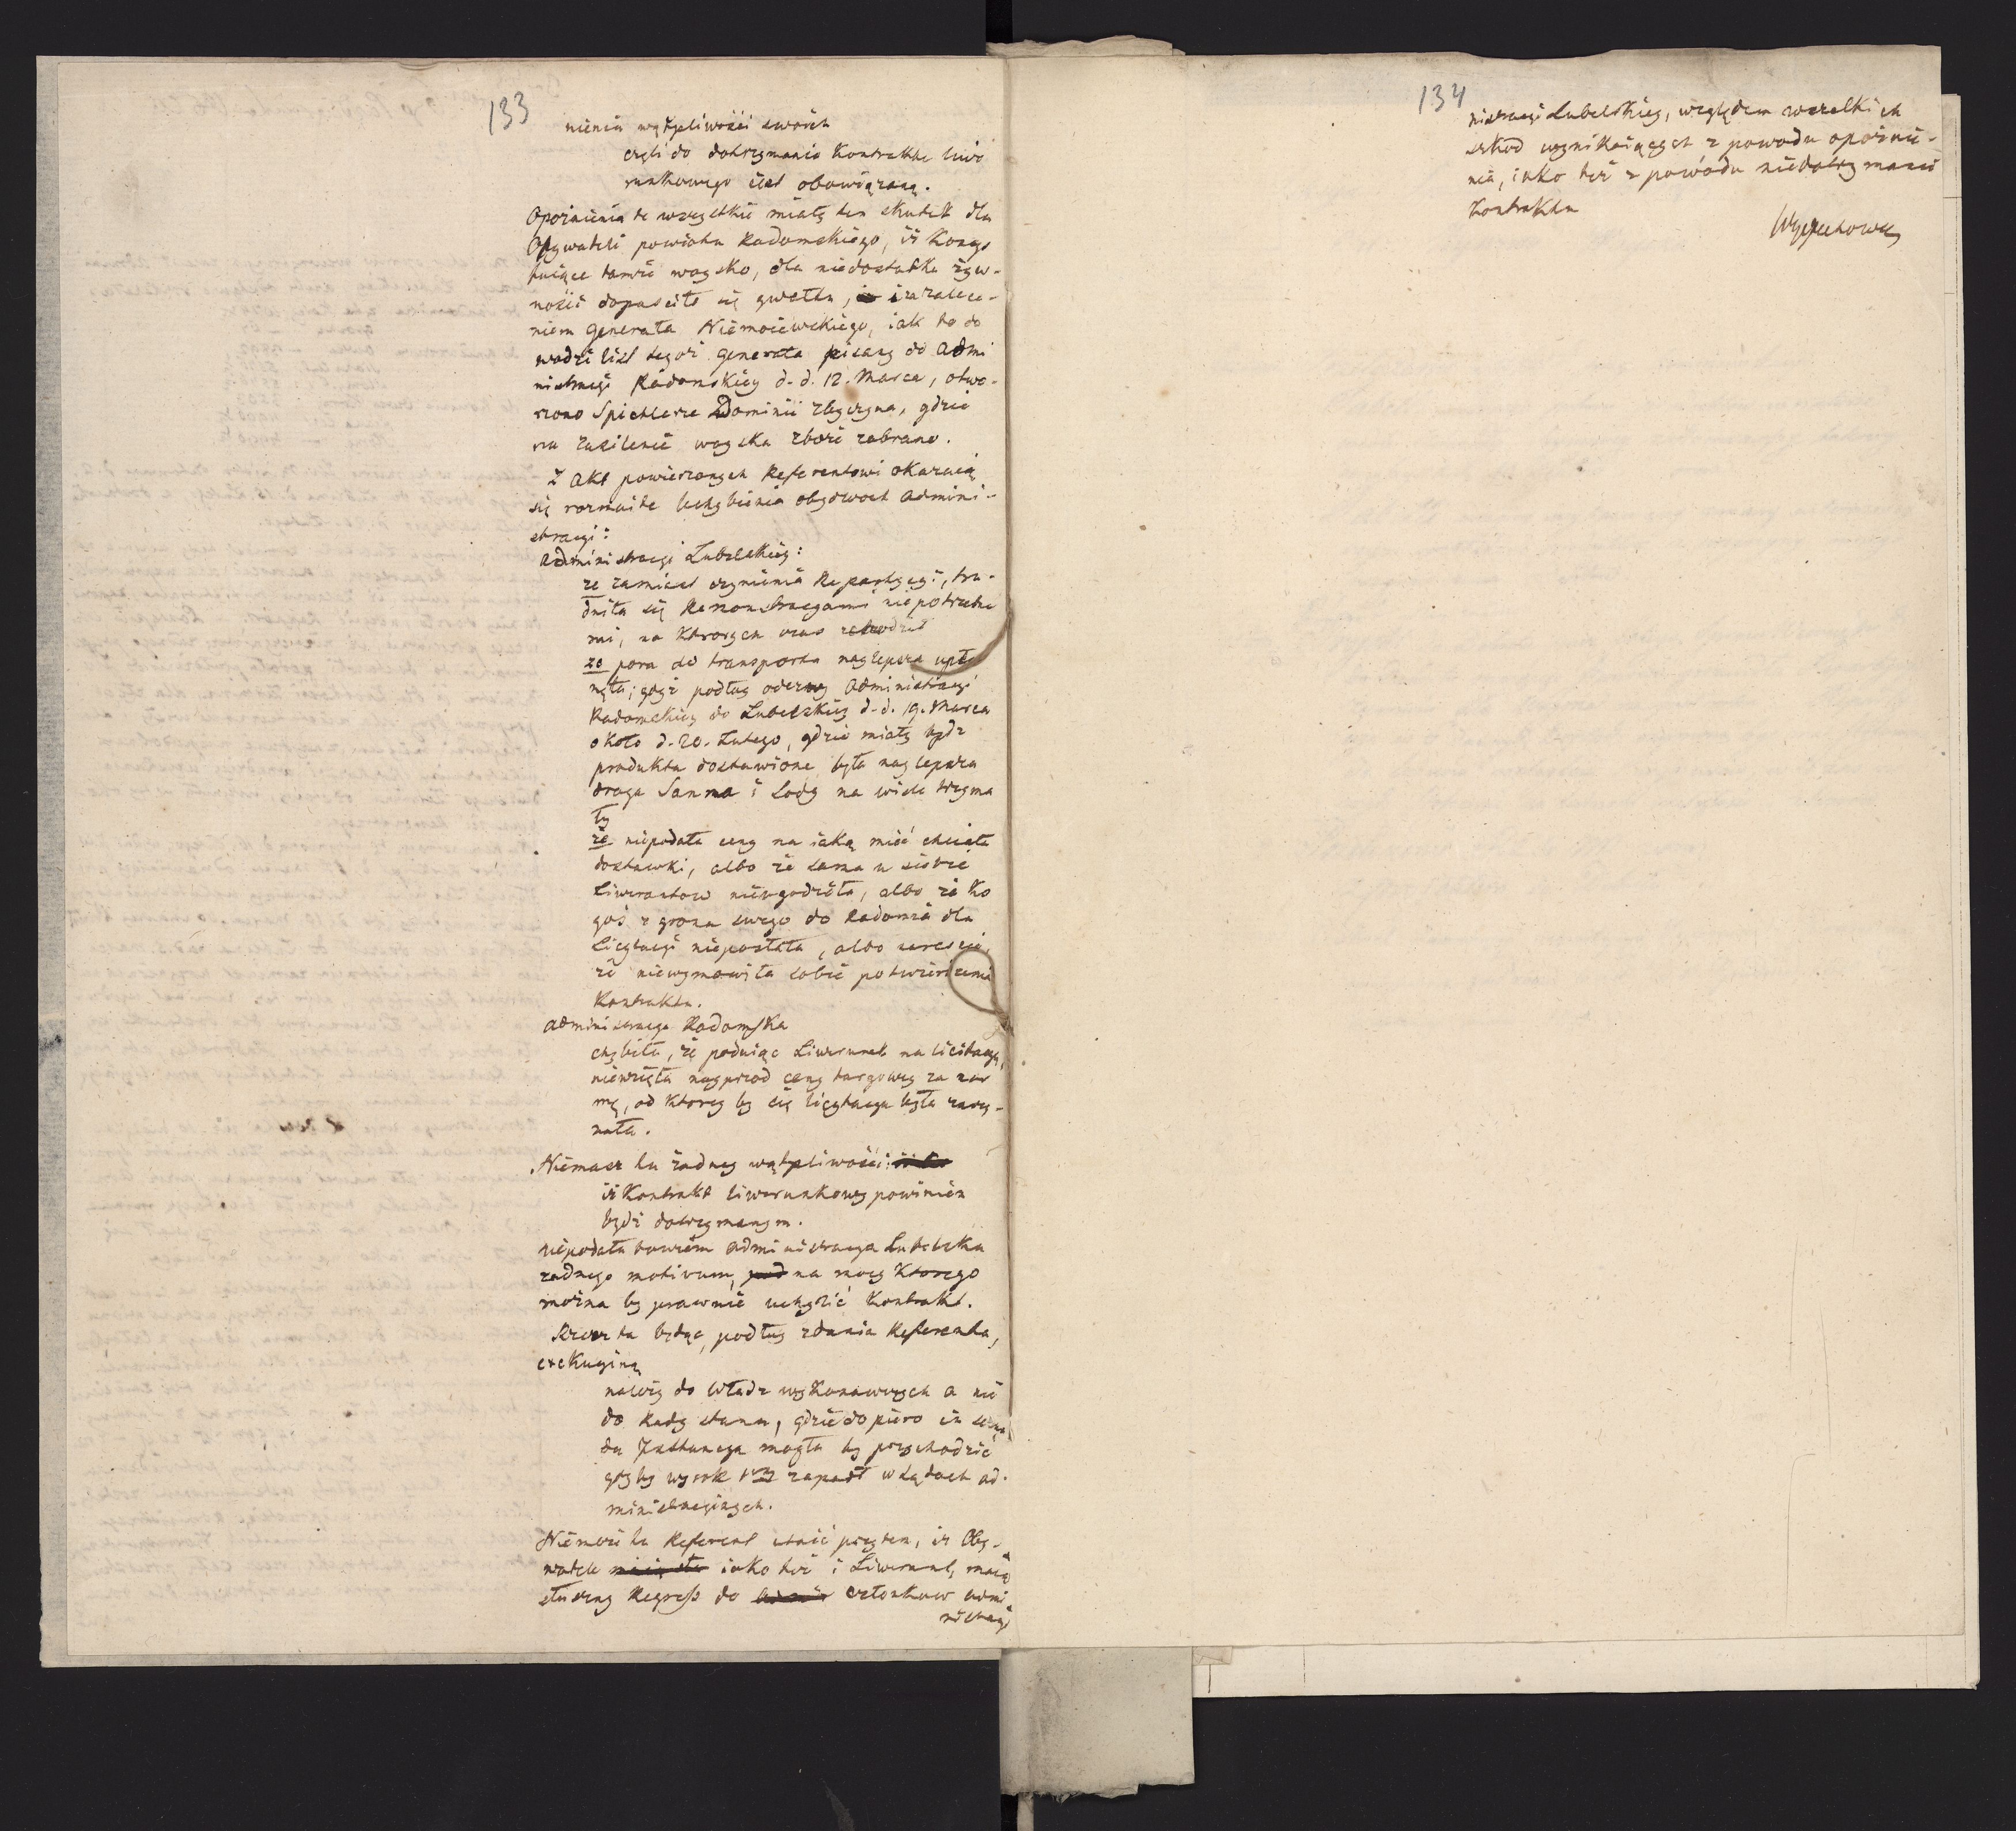 133
nienia wątpliwości swoich
czyli do dotrzymania Kontraktu liwe
runkowego iest obowiązaną.
Opoźnienia te wszystkie miały ten skutek dla
Obywateli powiatu Radomskiego, iż Konsys
tuiące tamże woysko, dla niedostatku żyw-
ności dopuściło się gwałtu, i za zalece-
niem Generała Niemoiewskiego, iak to do
wodzi list tegoż Generała pisany do Admi
nistracyi Radomskiey d. d. 12. Marca, otwo-
rzono Spichlerze Dominii Zbyczyna, gdzie
na zasilenie woyska zboże zabrano.
Z Akt powierzonych Referentowi okazuią
się rozmaite uchybienia obydwoch Admini-
stracyi:
Administracyi Lubelskiey:
że zamiast czynienia Repartycyi, tru-
dniła się Remonstracyami niepotrzebne
mi, na ktorych czas schodził
że pora do transportu naylepsza upły
nęła; gdyż podług odezwy Administracyi
Radomskiey do Lubelskiey d. d. 19. Marca
około d. 20. Lutego, gdzie miały bydz
produkta dostawione była naylepsza
droga Sanna i Lody na wiele trzyma
ły
że niepodała ceny na iaką mieć chciała
dostawki, albo że sama u siebie
Liwerantow nieugodziła, albo że ko
goś z grona swego do Radomia dla
Licytacyi nieposłała, albo nareście,
że niewymowiła sobie potwierdzenia
Kontraktu.
Administracya Radomska
chybiła, że poduiąc Liwerunek na licitacyą,
niewzięła nayprzod ceny targowey za nor
mę, od ktorey by się licytacya była zaczy-
nała.
Niemasz tu żadney wątpliwości:
iż Kontrakt liwerunkowy powinien
bydź dotrzymanym.
niepodała bowiem Administracya Lubelska
żadnego motivum, na mocy Ktorego
można by prawnie uchylić Kontrakt.
Rzecz ta będąc, podług zdania Referenta,
exekucyiną
należy do Władz wykonawczych a nie
do Rady stanu, gdzie dopiero in secun
da Instancya mogła by przychodzić
gdyby wyrok 1wszy zapadł w Sądach ad-
ministracyinych.
Niemoże tu Referent utaić przytem, iż Oby-
watele iako też i Liwerant, maią
słuszny Regress do Członkow Admi
nistracyi
134
nistracyi Lubelskiey, względem wszelkich
szkod wynikaiących z powodu opoźnie-
nia, iako też z powodu niedotrzymania
Kontraktu